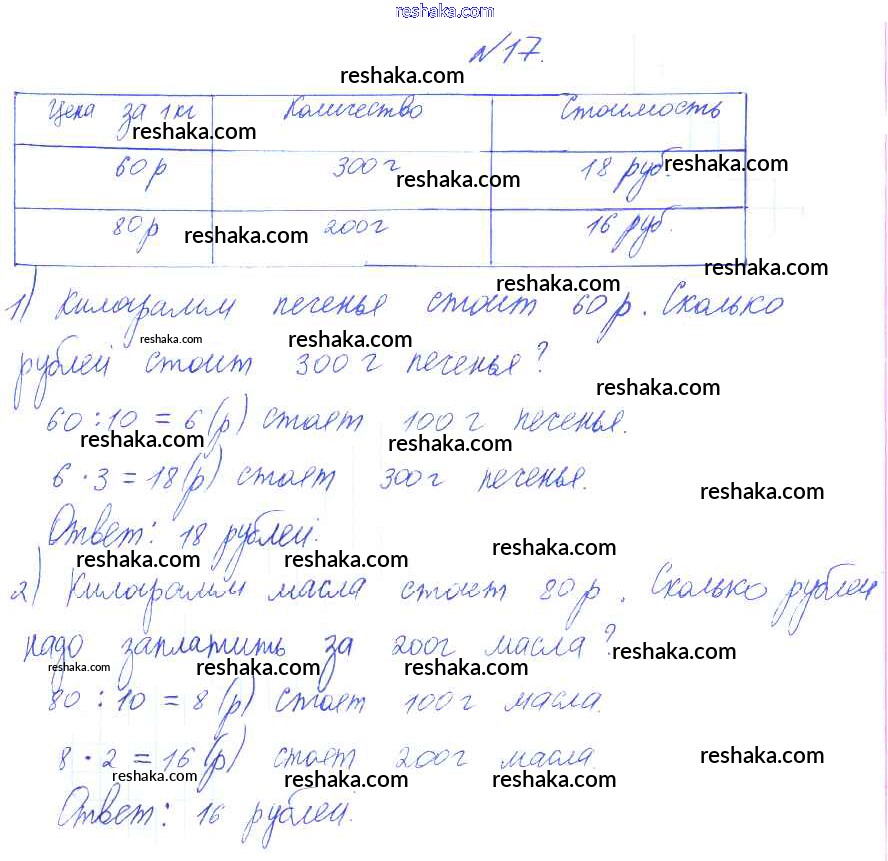 reshaka.com
N17.
reshaka.com
Цена за 1кг Количество Стоимость
reshaka.com
60р 300г 18 руб.
reshaka.com reshaka.com
80р 200г 16 руб.
reshaka.com
reshaka.com
1) Килограмм печенья стоит 60 р. Сколько
reshaka.com
reshaka.com reshaka.com
рублей стоит 300 г печенья?
reshaka.com
60 : 10 = 6 (р) стоет 100 г печенья.
reshaka.com reshaka.com
6 · 3 = 18 (р) стоет 300г печенья.
reshaka.com
Ответ: 18 рублей.
reshaka.com reshaka.com reshaka.com
2) Килограмм масла стоет 80 р. Сколько рублей
надо заплатить за 200г масла?
reshaka.com reshaka.com reshaka.com reshaka.com
80 : 10 = 8 (р) стоет 100 г масла.
8 · 2 = 16 (р) стоет 200г масла.
reshaka.com reshaka.com reshaka.com reshaka.com
Ответ: 16 рублей.